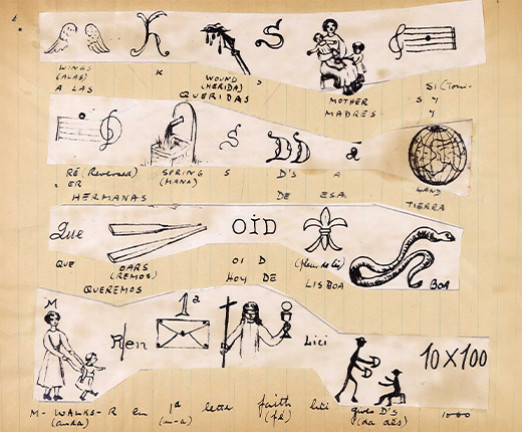 K S
WINGS WOUND
(ALAS) K (HERIDA) S MOTHER SI
A LAS QUERIDAS MADRES S Y
Y
S DD a
RÉ Reversed) SPRING S D'S A
ER (MANA) LAND
HERMANAS DE ESA TIERRA
Que OİD
QUE OARS OI D (fleur de lis) BOA
(REMOS) HOY DE LISBOA
QUEREMOS
M R/en 1ª Lici 10X100
M- WALKS-R en 1ª letter faith lici gives D'S 1000
(anda) (fé) (da dés)